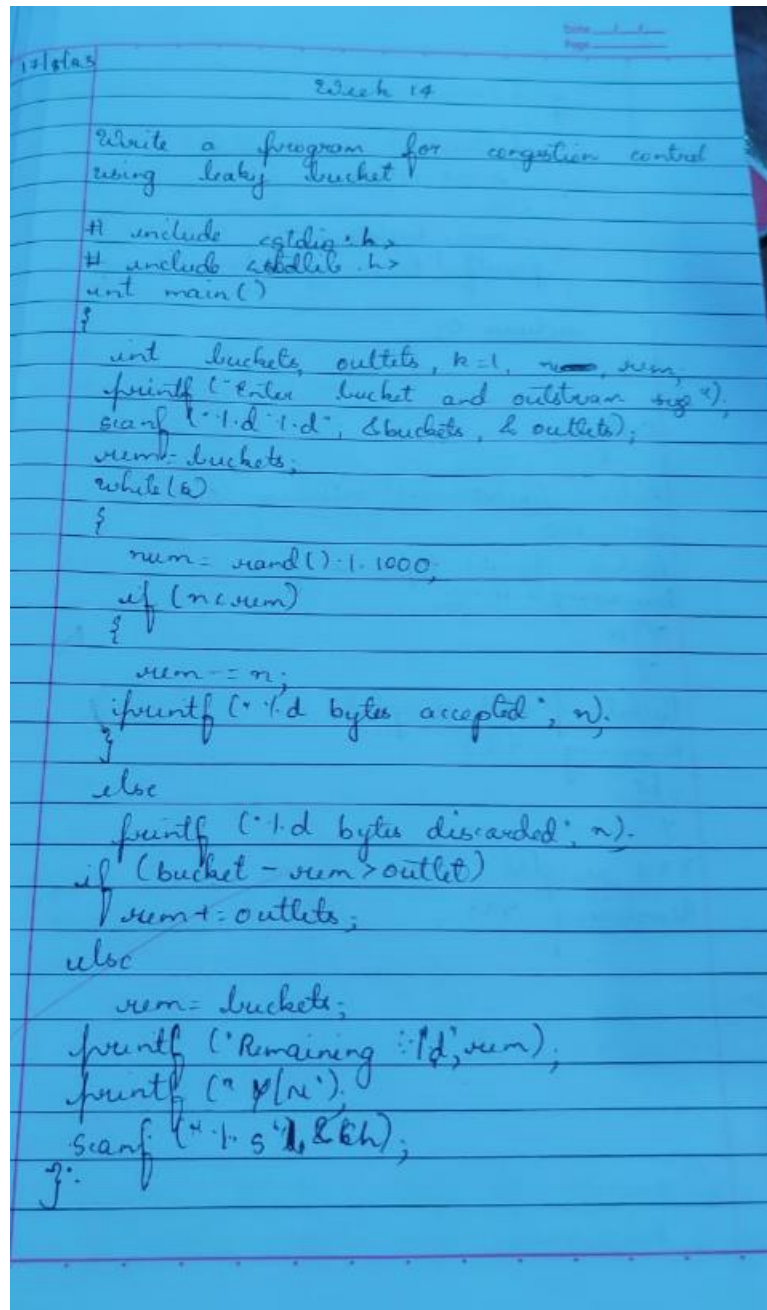 Date
Page
17/8/23
Week 14
Write a program for congestion control
using leaky bucket
# include <stdio.h>
# include <stdlib.h>
int main()
{
int buckets, outlets, k=1, rem;
printf ("Enter bucket and outstream size");
scanf ("%d %d", &buckets, & outlets);
rem = buckets;
while(k)
{
num = rand() % 1000;
if (n<rem)
{
rem -= n;
printf (" %d bytes accepted", n);
}
else
printf ("%d bytes discarded", n);
if (bucket - rem > outlet)
rem += outlets;
else
rem = buckets;
printf ("Remaining : %d", rem);
printf (" y/n");
scanf ("%s", &ch);
}